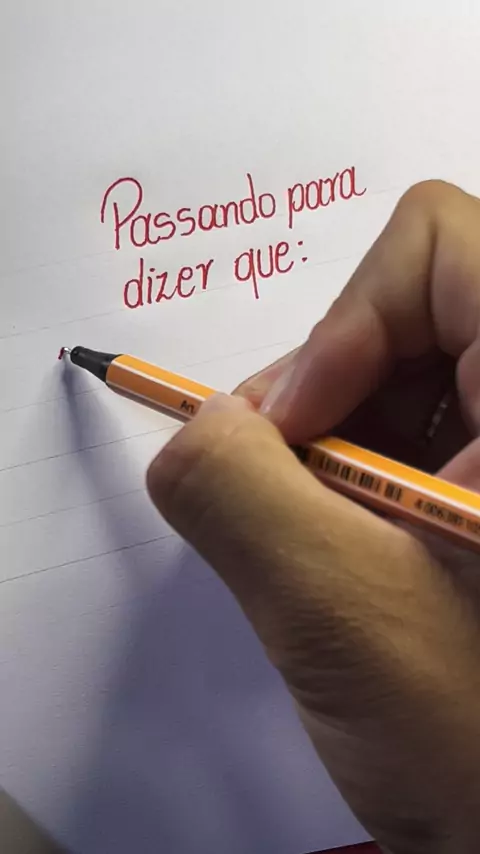 Passando para
dizer que: